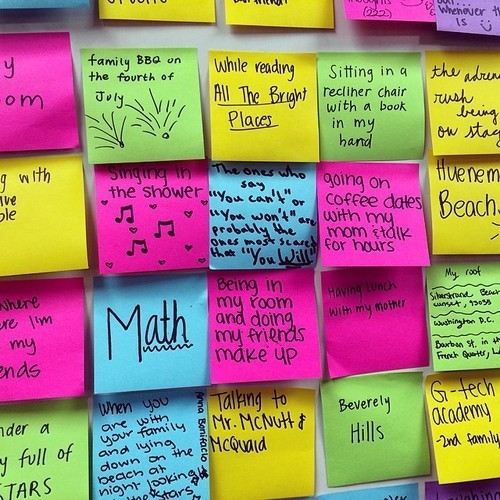 Whenever
is :)
family BBQ on
the fourth of
July
While reading
All The Bright
Places
Sitting in a
recliner chair
with a book
in my
hand
the
rush
being
on
y
om
g with
Singing in
the shower
The ones who
say
"You can't" or
"you won't" are
probably the
ones most scared
that "You Will"
going on
coffee dates
with my
mom & talk
for hours
Huenem
Beach
where
I'm
my
ends
Math
Being in
my room
and doing
my friends
make up
Having Lunch
with my mother
My roof
Silverstrand Beach
sunset, 93035
Washington D.C.
Bourbon St. in th
French Quarter,
under a
y full of
STARS
When you
are with
your family
and lying
down on the
beach at
night looking
the stars
Anna Bonifacio
Talking to
Mr. McNutt &
McQuaid
Beverely
Hills
G-tech
academy
-2nd family